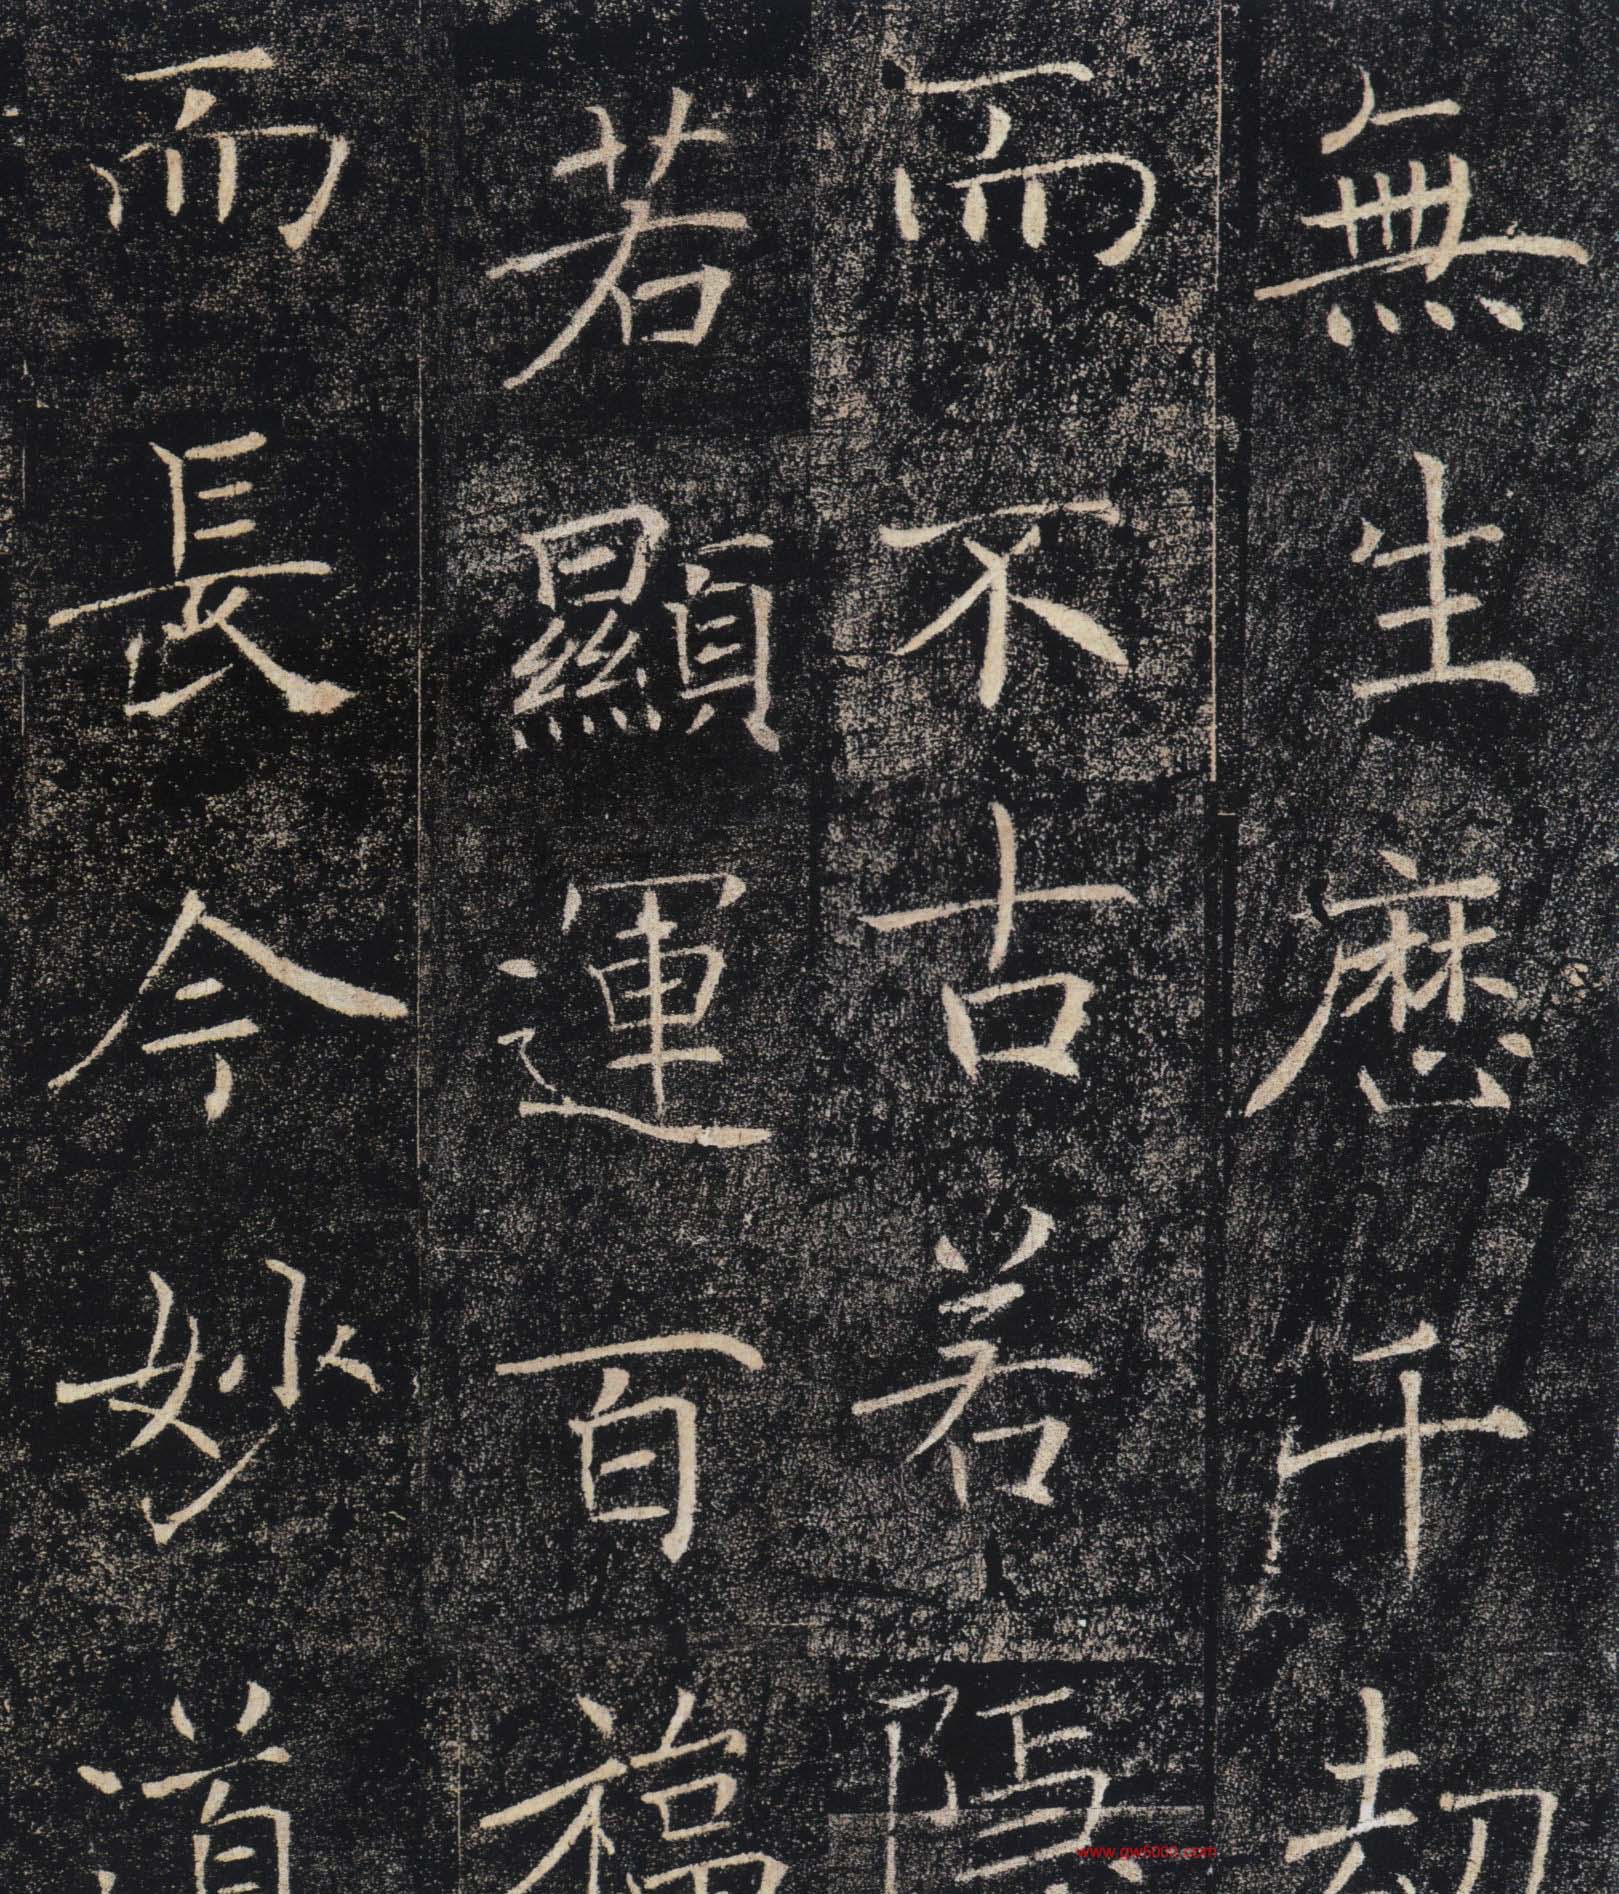 無生歷千劫
而不古若隱
若顯運百福
而長今妙道
www.gw5000.com